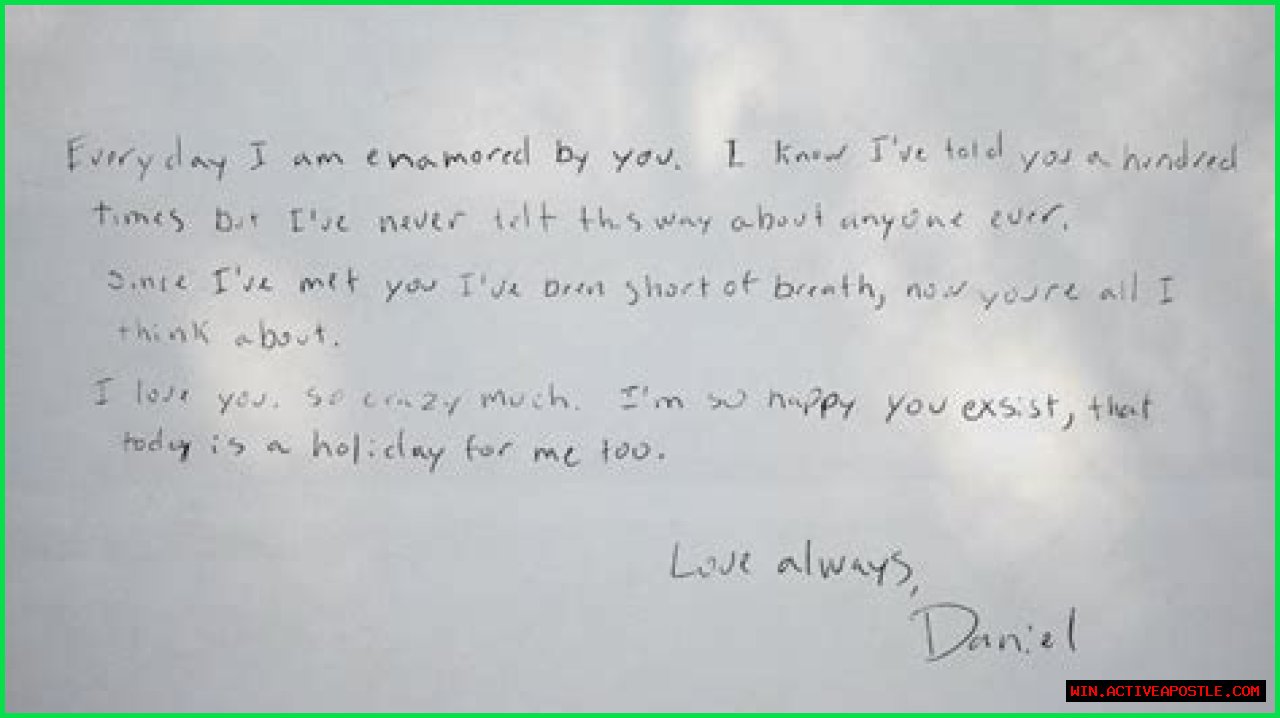 Everyday I am enamored by you. I know I've told you a hundred
times but I've never felt this way about anyone ever.
Since I've met you I've been short of breath, now youre all I
think about.
I love you. so crazy much. I'm so happy you exsist, that
today is a holiday for me too.
Love always,
Daniel
WIN.ACTIVEAPOSTLE.COM